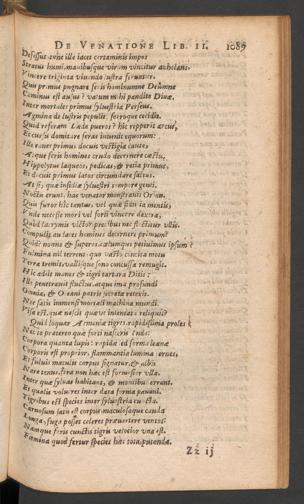 DE VENATIONE LIB. II. 1089
Defessus anne ille iacet certaminis impos
Stratus humi, manibusque virum vincitur anhelans.
Vincere triginta viuendo lustra feruntur.
Quis primus pugnare feris hominumue Deûmue
Comminus est ausus? vatum mihi pandite Diuæ.
Inter mortales primus syluestria Perseus,
Agmina de lustris populit, ferroque cecidit.
Quid referam Lædæ pueros? hic repperit arcus,
Et cursu demitare feras inuenit equorum:
Ille canes primus docuit vestigia cautè,
Atque feris homines crudo decernere cæstu,
Hippolytus laqueos, pedicas, & retia primus,
Et docuit primus latos circundare saltus.
At si, quæ insidiæ syluestri tempore
Noctis erunt, hæc venator monstrauit Orion.
Quis furor hic tantus, vel quæ sitis in mentis,
Unde necesse mori vel forti vincere dextra,
Quid lacrymis victor precibus nec flectitur vllis.
Compulit an tales homines decernere primum?
Quid? homo & superos cœlumque petiuimus ipsum?
Fulmina nil terrent: quo vasto concita motu
Terra tremit, vallisque sono concussa remugit.
Hic ædit manes & nigri tartara Ditis:
Hic penetrauit fluctus, atque ima profundi
Omnia, & Oceani patris secreta retexit.
Nec satis immensi mortali machina mundi,
Visa est. quæ nescis quæuè intentata reliquit?
Quid loquar Armeniæ tigres rapidissima proles?
Nec te præterea quæ forti nasceris
Corpora quanta lupi: rapidæ ed forma leænæ
Corporis est proprior, flammantia lumina cernes,
Et fuluis maculis corpus signatur, & albis.
Nare tenus, fera non hac est formosior vlla.
Inter quæ syluas habitans, & montibus errant.
Et qualis volucres inter data forma pauoni.
Tigribus est species inter syluestria
Carnosum latus est corpus, maculosaque cauda
Longa, fuga possit celeres præuertere ventos:
Namque feris cunctis tigris velocior vna est.
Fœmina quod fertur species hæc tota, putenda.
Zz ij